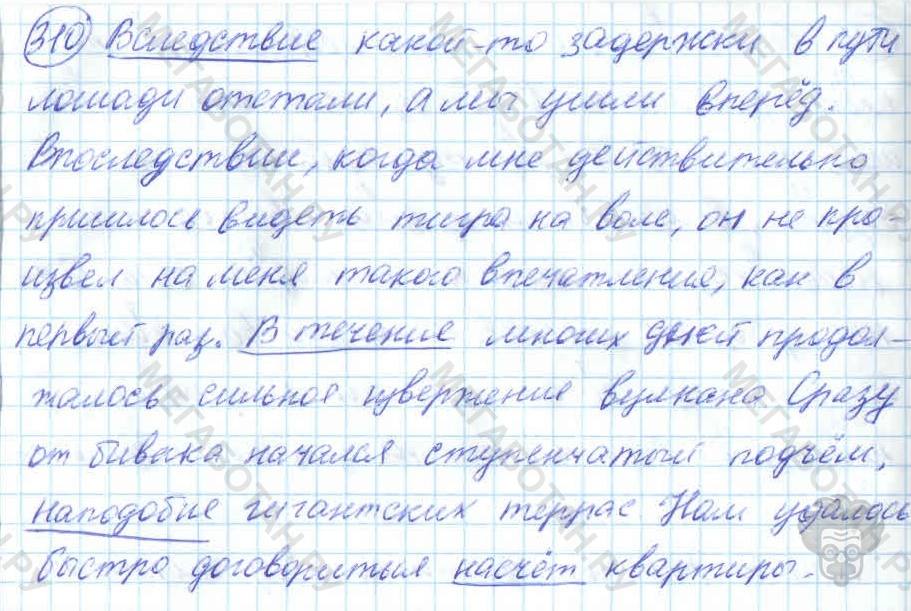 310 Вследствие какой-то задержки в пути
лошади отстали, а мы ушли вперёд.
Впоследствии, когда мне действительно
пришлось видеть тигра на воле, он не про-
извел на меня такого впечатления, как в
первый раз. В течение многих дней продол-
жалось сильное извержение вулкана. Сразу
от бивака начался ступенчатый подъём,
наподобие гигантских террас. Нам удалось
быстро договориться насчёт квартиры.
МЕГАБОТАН.РУ